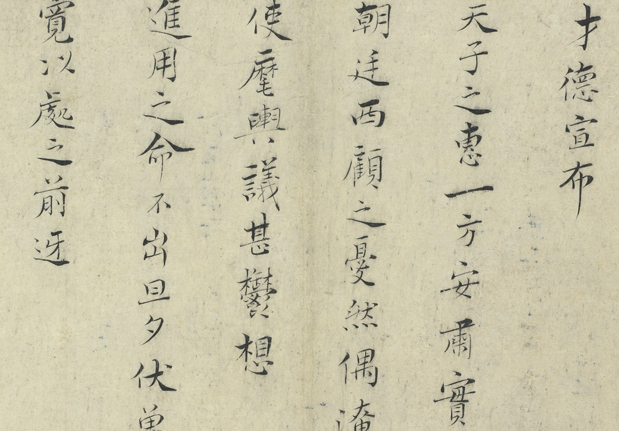 才德宣布
天子之惠一方安肅實
朝廷西顧之憂然偶淹
使麾輿議甚鬱想
進用之命不出旦夕伏幾
寬以處之前迓